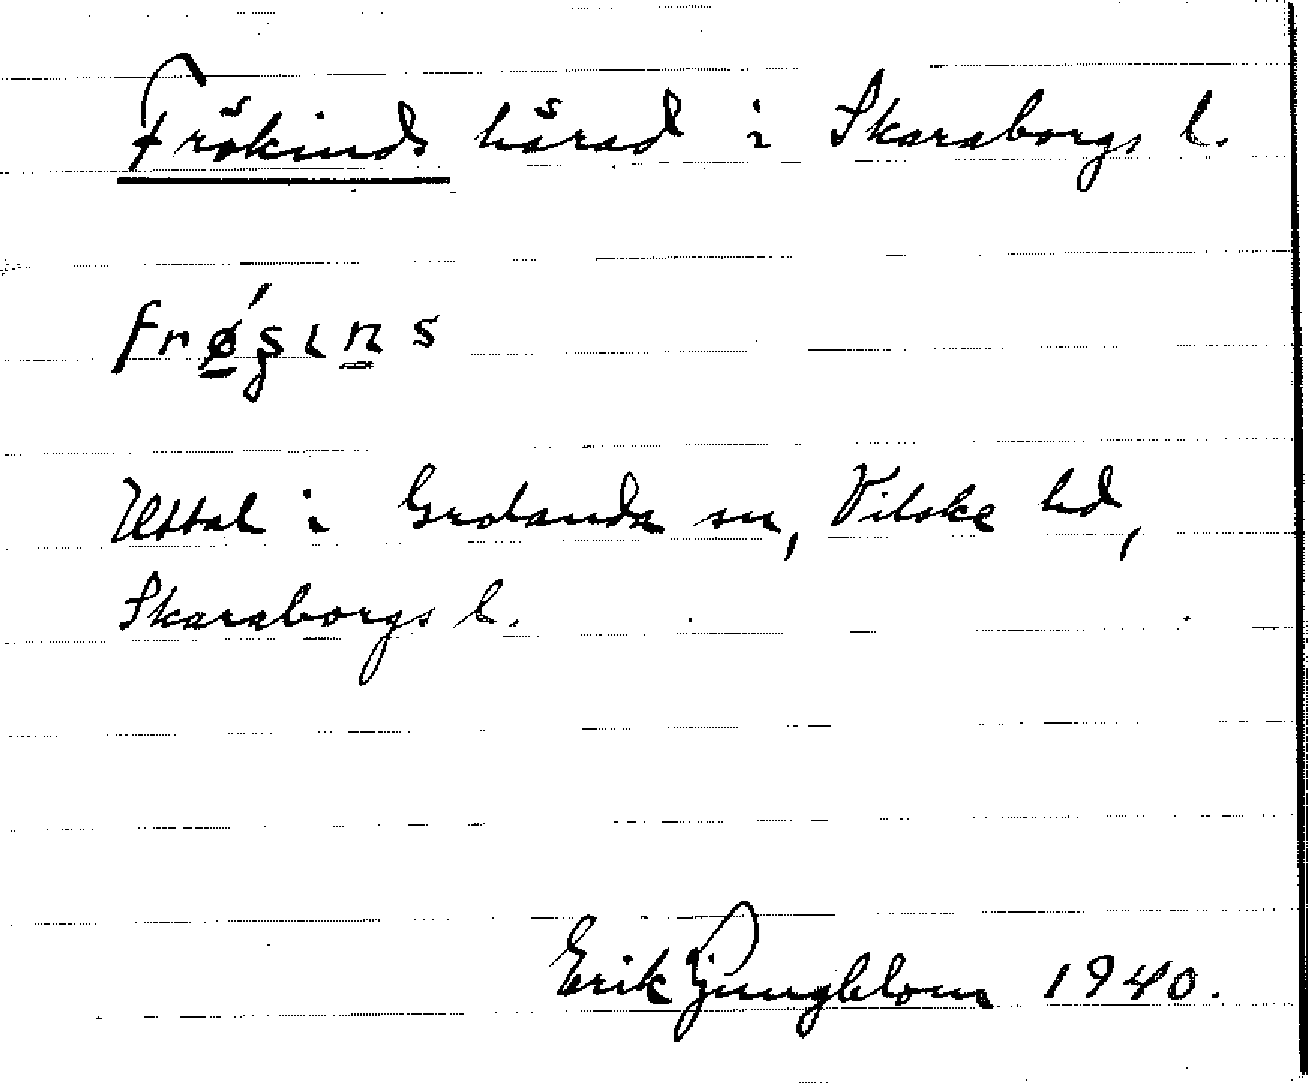 Frökinds härad i Skaraborgs l.
frǿ̲ʂɩn̲s
Uttal i Grolanda sn, Vilske hd,
Skaraborgs l.
Erik Ljungblom 1940.